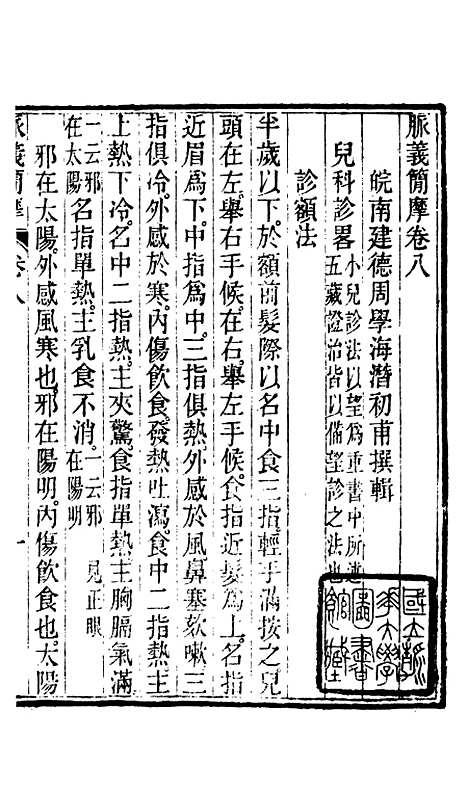 脈義簡摩卷八
皖南建德周學海潛初甫撰輯
兒科診畧
小兒診法以望爲重書中所述
五藏證治皆以備望診之法也
診額法
半歲以下於額前髮際以名中食三指輕手滿按之兒
頭在左舉右手候在右舉左手候食指近髮爲上名指
近眉爲下中指爲中三指俱熱外感於風鼻塞欬嗽三
指俱冷外感於寒內傷飲食發熱吐瀉食中二指熱主
上熱下冷名中二指熱主夾驚食指單熱主胸膈氣滿
一云邪
在太陽
名指單熱主乳食不消
一云邪
在陽明
見正眼
邪在太陽外感風寒也邪在陽明內傷飲食也太陽
脈義簡摩
卷八
一